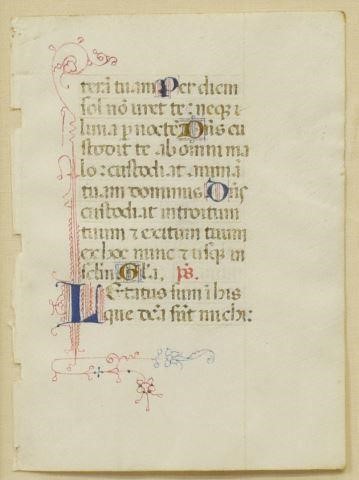 terā tuam Per diem
sol nō uret te: neq; ꝫ
luna p̲ noctē Dn̄s cu
stodit te ab omni ma
lo: custodiat animā
tuam dominus Dn̄s
custodiat introitum
tuum ⁊ exitum tuum
ex hoc nunc ⁊ usq; in
sc̄lm̄ Gl̄a, ps̄.
Letatus sum ī his
que dc̄a sūt michi: